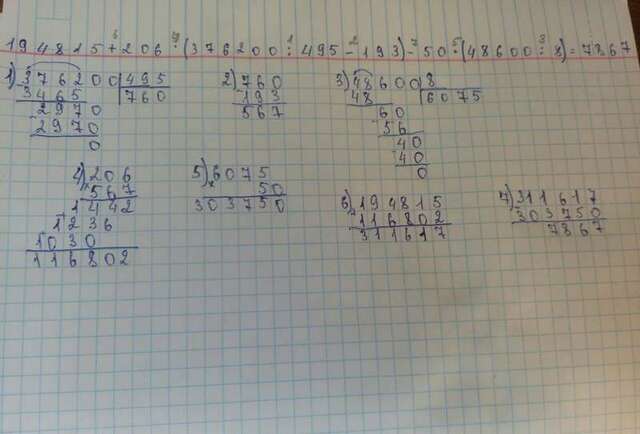 194815+206·(376200:495-193)-50·(48600:8)=7867
1) 376200 | 495
3465 | 760
2970
2970
0
2) 760
193
567
3) 48600 | 8
48 | 6075
60
56
40
40
0
4) 206
567
1442
1236
1030
116802
5) 6075
50
303750
6) 194815
116802
311617
7) 311617
303750
7867